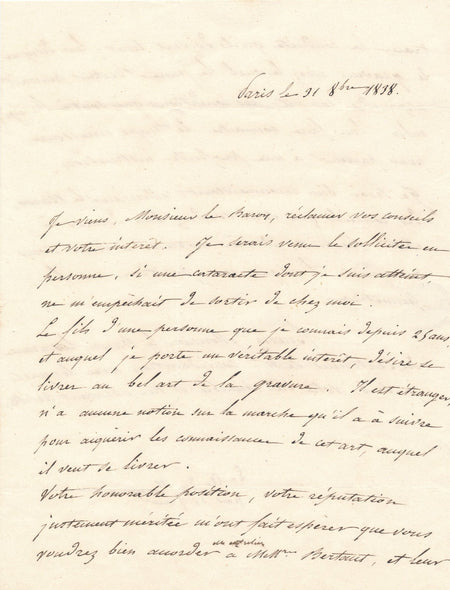 Paris le 31 8bre 1838.
Je viens, Monsieur le Baron, réclamer vos conseils
et votre intérêt. Je serais venu le solliciter en
personne, si une cataracte dont je suis atteint,
ne m'empêchait de sortir de chez moi.
Le fils d'une personne que je connais depuis 25 ans
et auquel je porte un véritable intérêt, désire se
livrer au bel art de la gravure. Il est étranger,
n'a aucune notion sur la marche qu'il a à suivre
pour acquérir les connaissances de cet art, auquel
il veut se livrer.
Votre honorable position, votre réputation
justement méritée m'ont fait espérer que vous
voudrez bien accorder à Bertaut, et leur